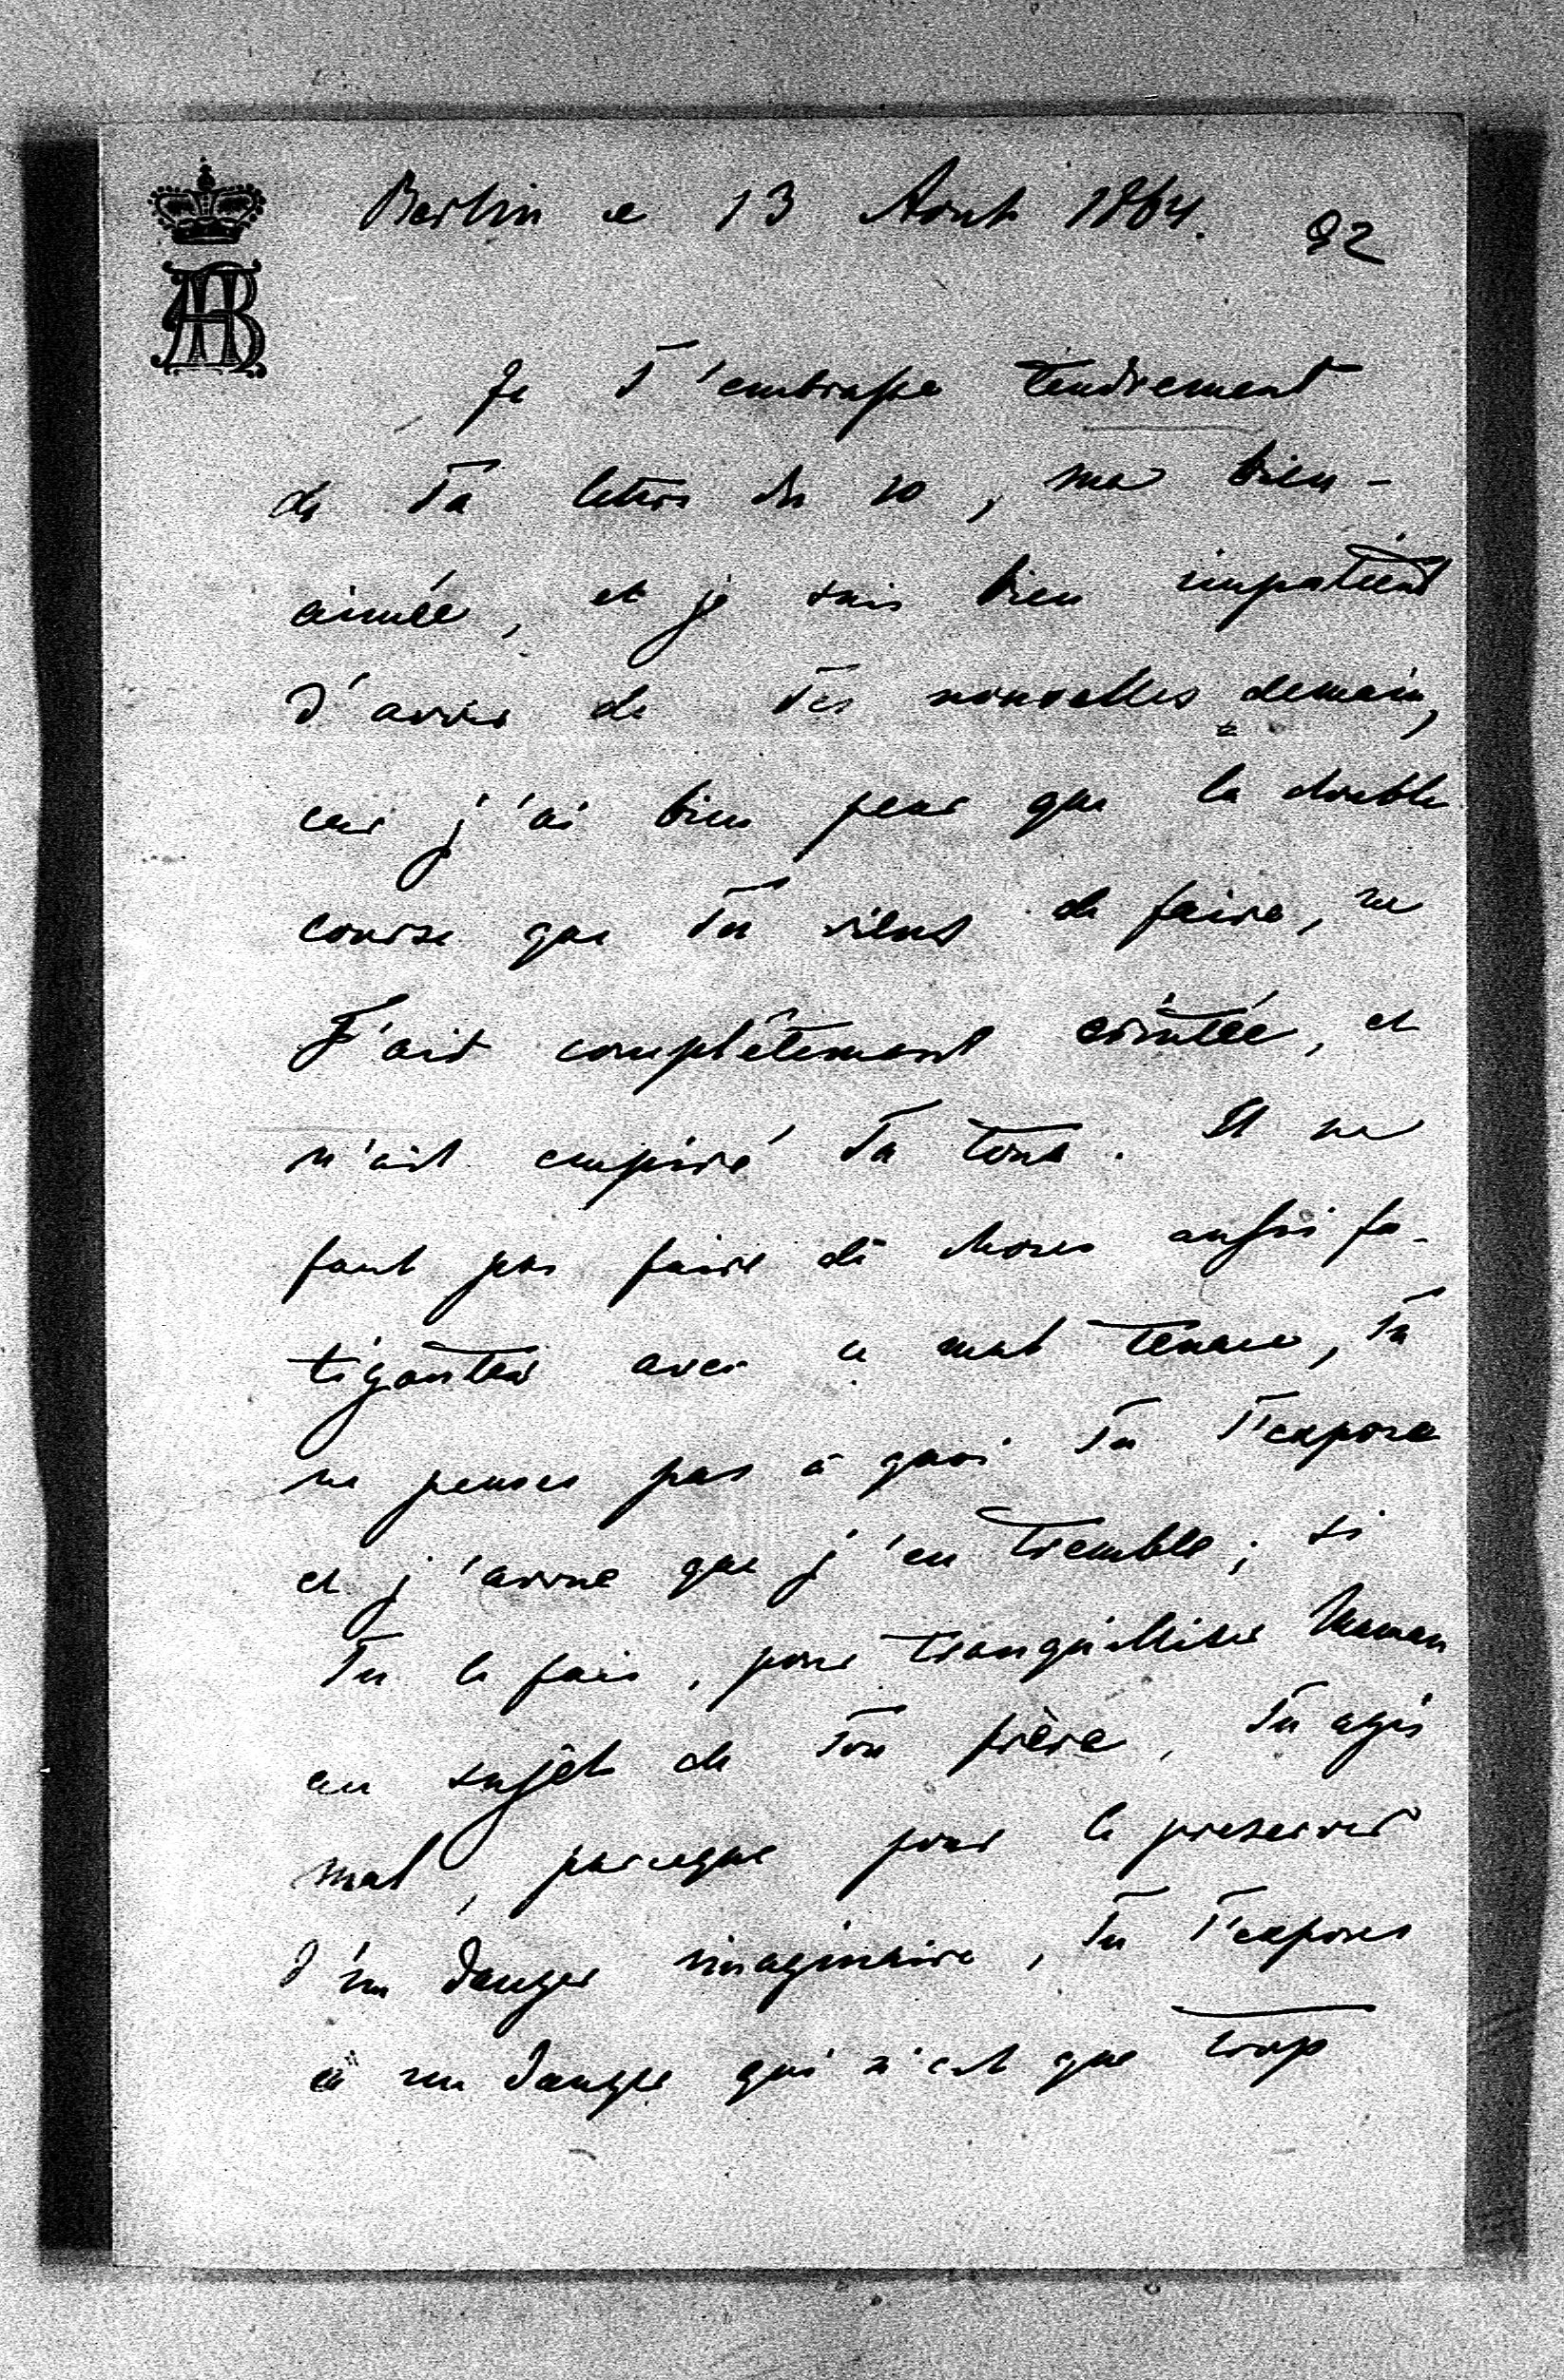 Berlin ce 13 Aout 1864. 92
Je T'embrasse tendrement
de Ta lettre du 10, ma bien-
aimée, et je suis bien impatient
d'avoir de Tes nouvelles demain,
car j'ai bien peur que la double
course que Tu viens de faire, ne
T'ait complêtement éreintée, et
n'ait empiré Ta toux. Il ne
faut pas faire de choses aussi fa-
tigantes avec ce mal tenace, Tu
ne penses pas à quoi Tu T'expose
et j'avoue que j'en tremble; si
Tu le fais, pour tranquilliser Maman
au sujet de Ton frère, Tu agis
mal, parceque pour le preserver
d'un danger imaginaire, Tu T'exposes
à un danger qui n'est que trop